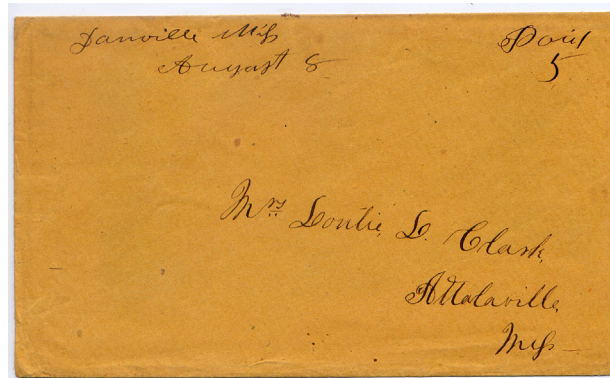 Danville Miss
August 8
Paid
5
Mrs Loutie L. Clark,
Attalaville,
Miss